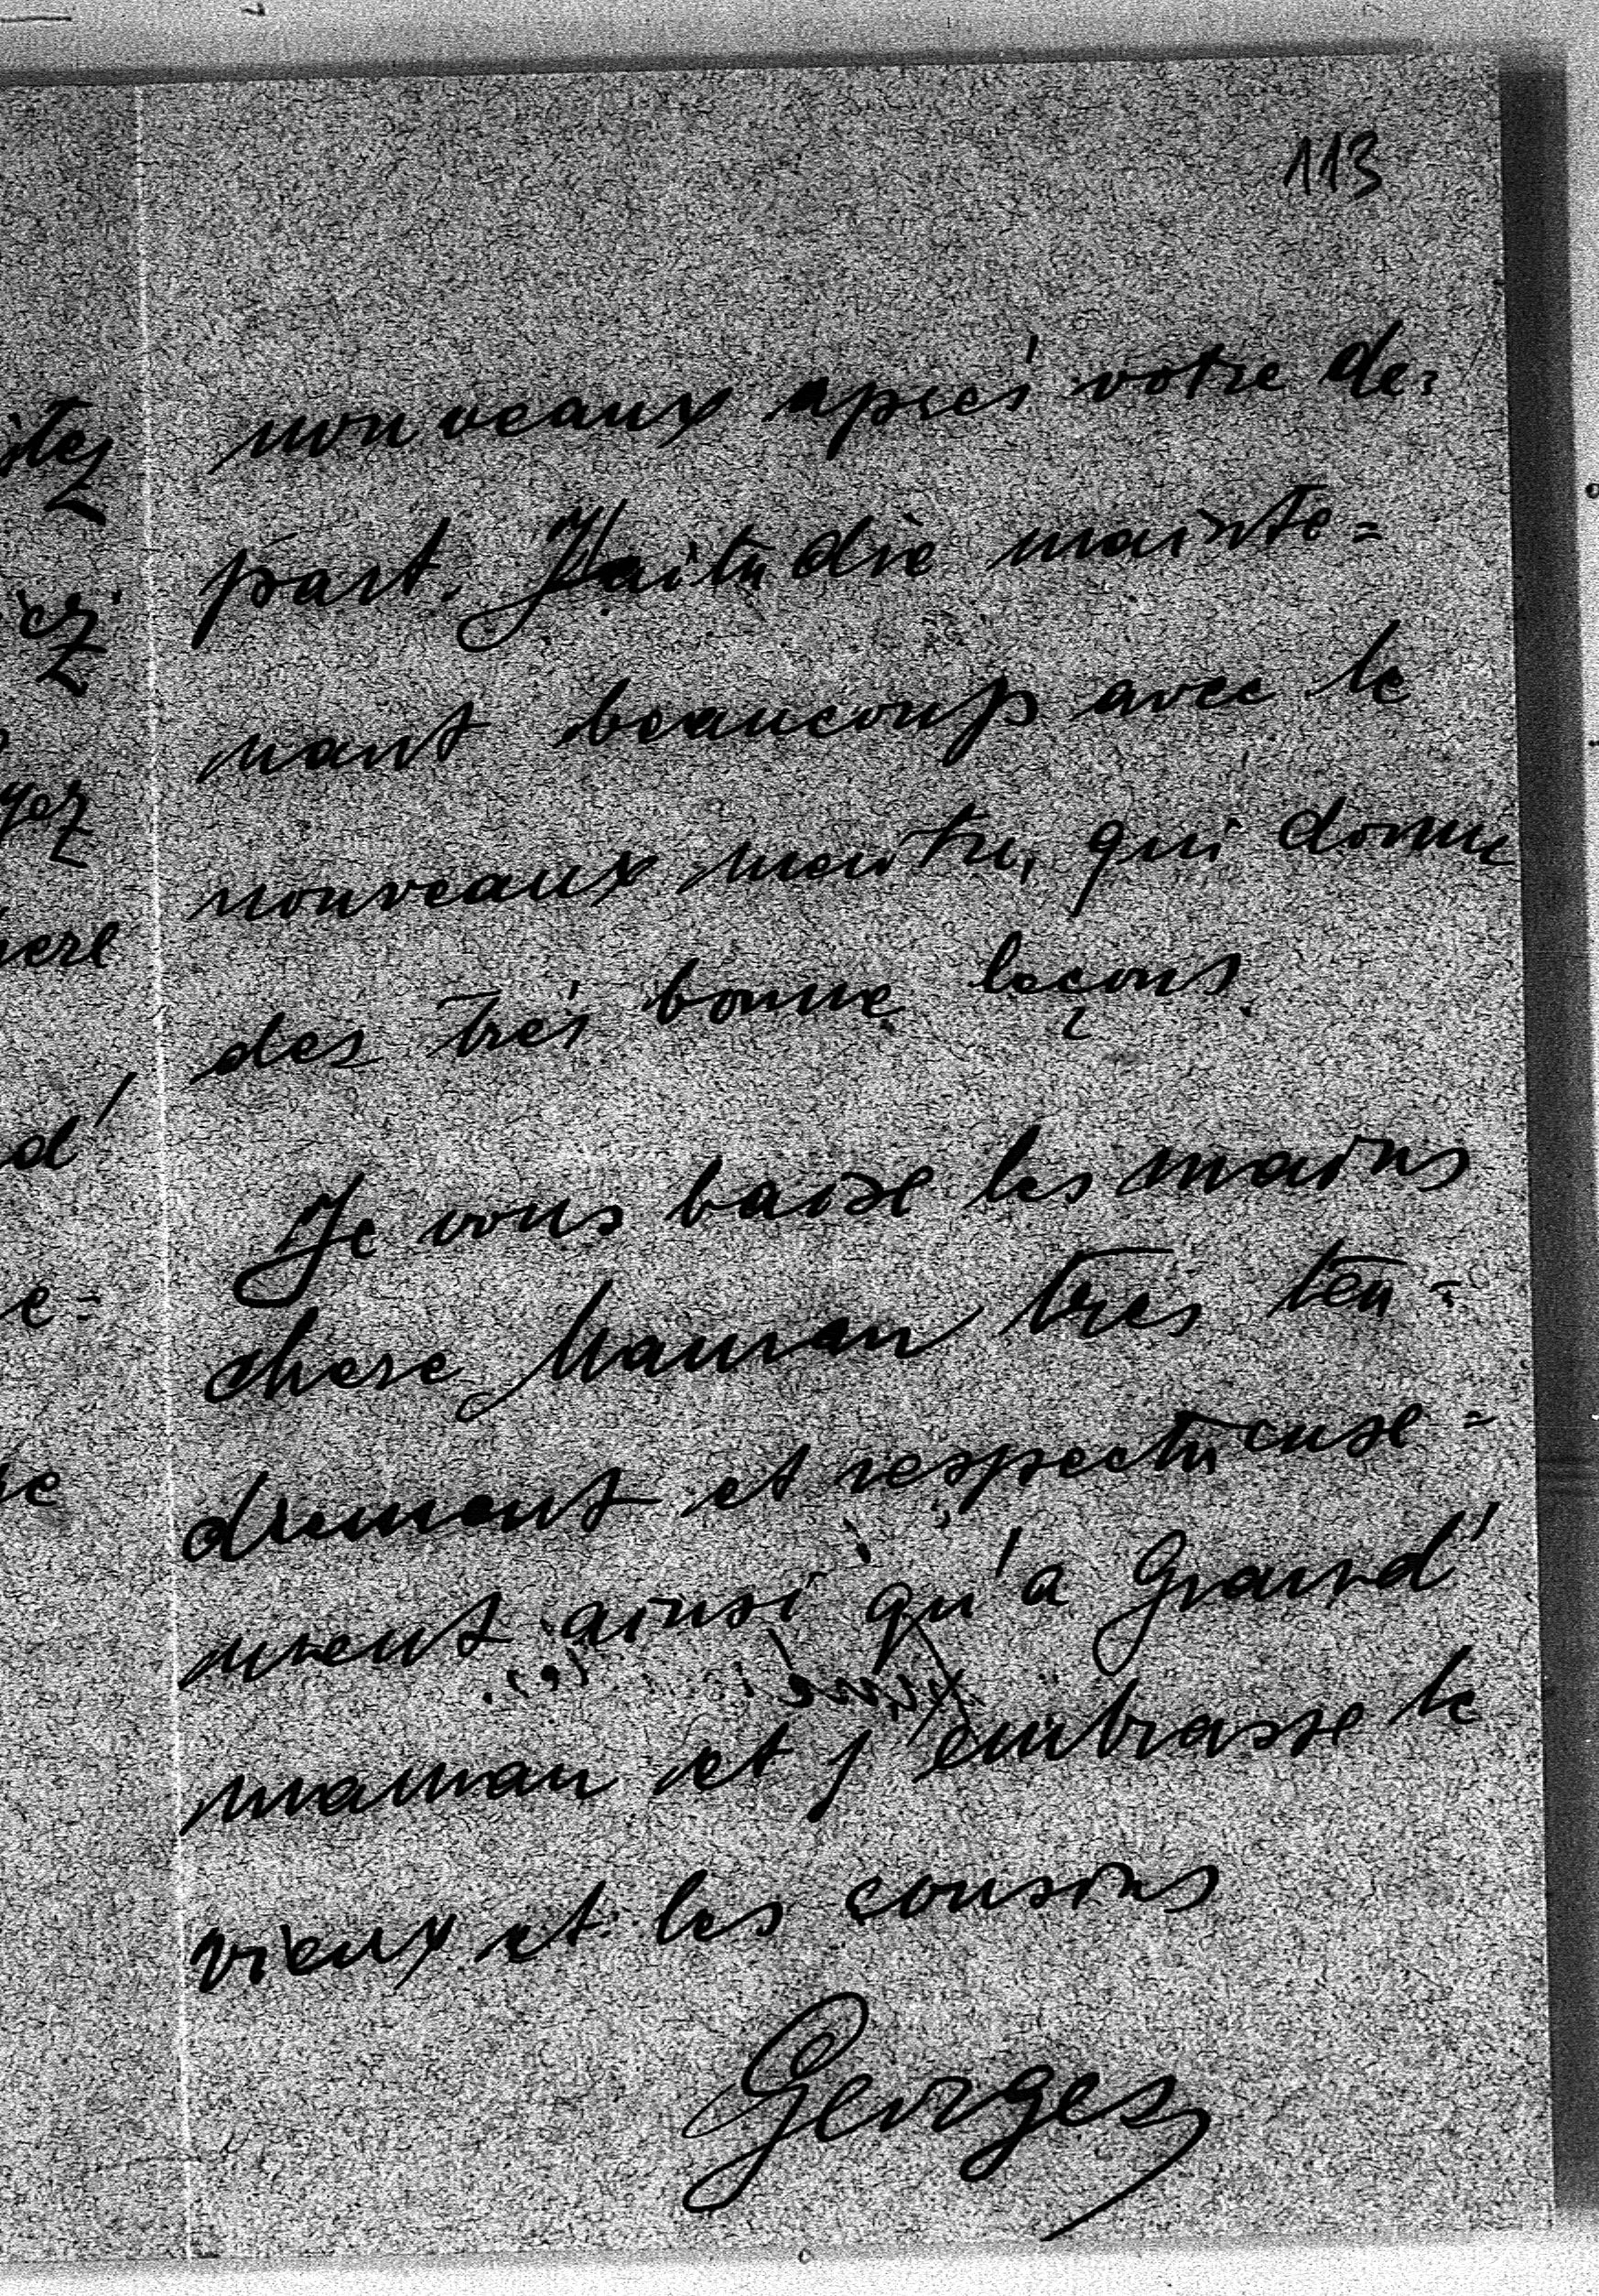 113
nouveaux aprés votre de=
part. J'aitudie mainte=
nant beaucoup avec le
nouveaux meitre, qui donne
des trés bonne leçons.
Je vous baise les mains
chere Maman tres ten=
drement et respectueuse=
ment ainsi qu'a Grand'
maman et j'embrasse le
vieux et les cousins
Georges